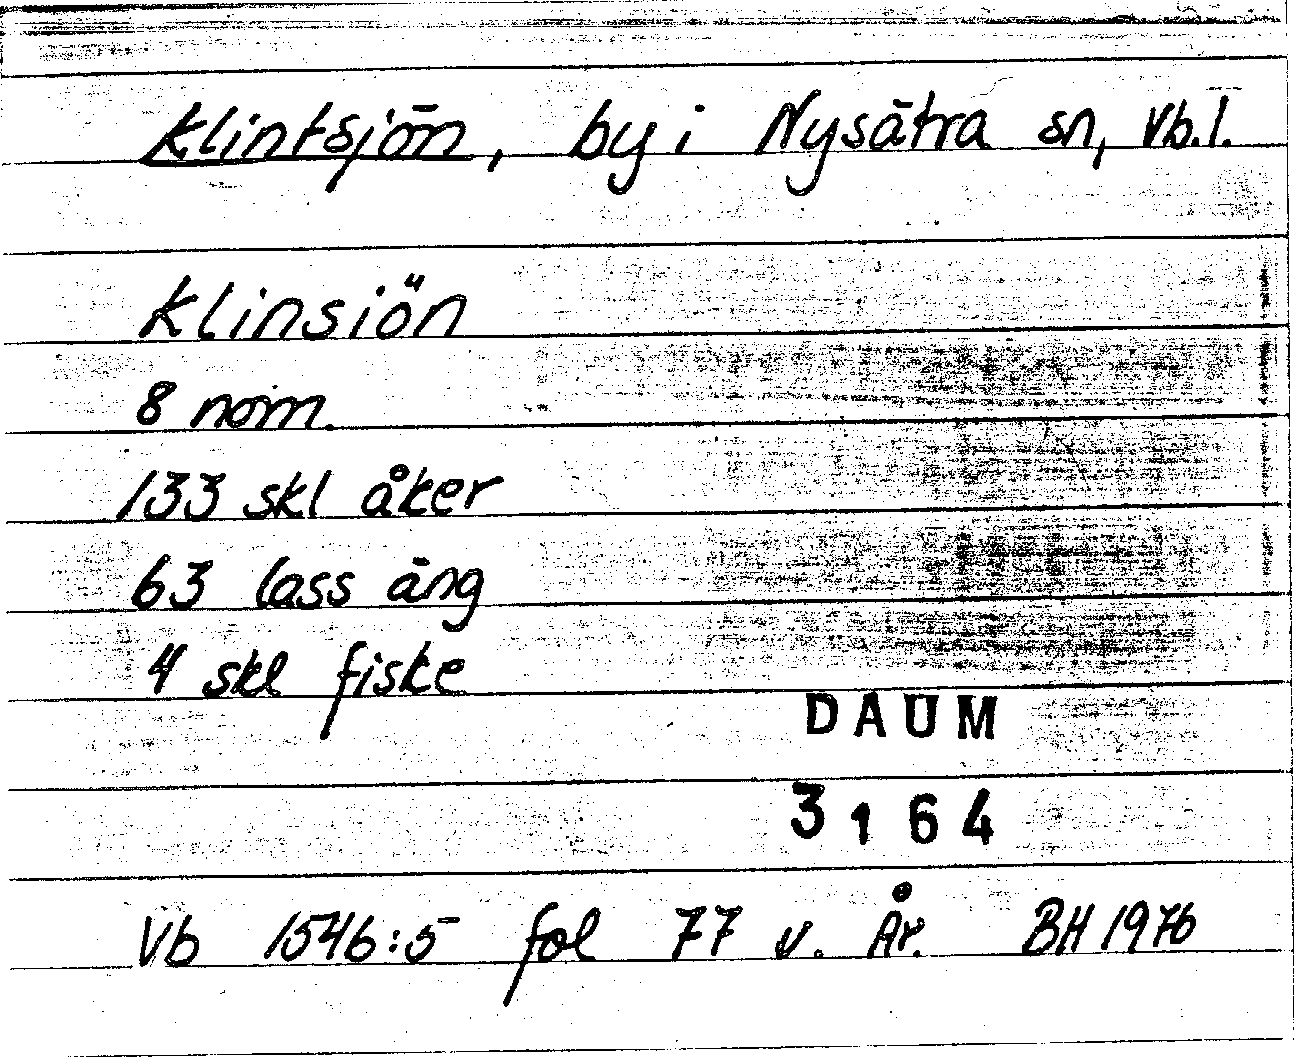 Klintsjön, by i Nysätra sn, Vb.l.
Klinsiön
8 nom.
133 skl åker
63 lass äng
4 skl fiske
DAUM
3164
Vb 1546:5 fol 77 v. År. BH 1976